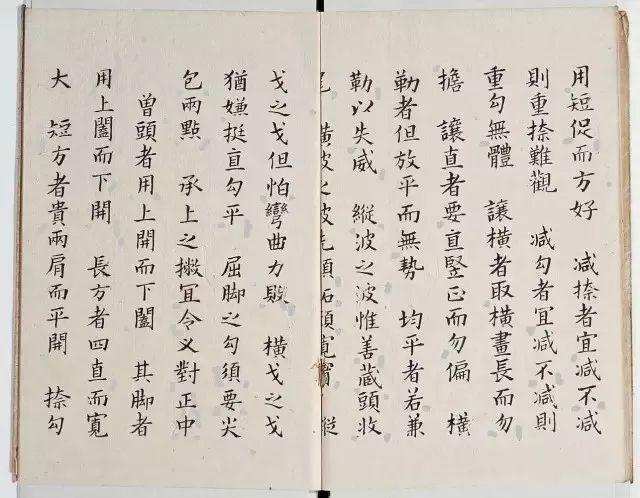 用短促而方好　減捺者宜減不減
則重捺難觀　減勾者宜減不減則
重勾無體　讓橫者取橫畫長而勿
擔　讓直者要直竪正而勿偏　橫
勒者但放平而無勢　均平者若兼
勒以失威　縱波之波惟善藏頭收
尾　橫波之波先須拓頸寬　縱
戈之戈但怕彎曲力敗　橫戈之戈
猶嫌挺直勾平　屈脚之勾須要尖
包兩點　承上之撇宜令乂對正中
曾頭者用上開而下闔　其脚者
用上闔而下開　長方者四直而寬
大　短方者貴兩肩而平開　捺勾